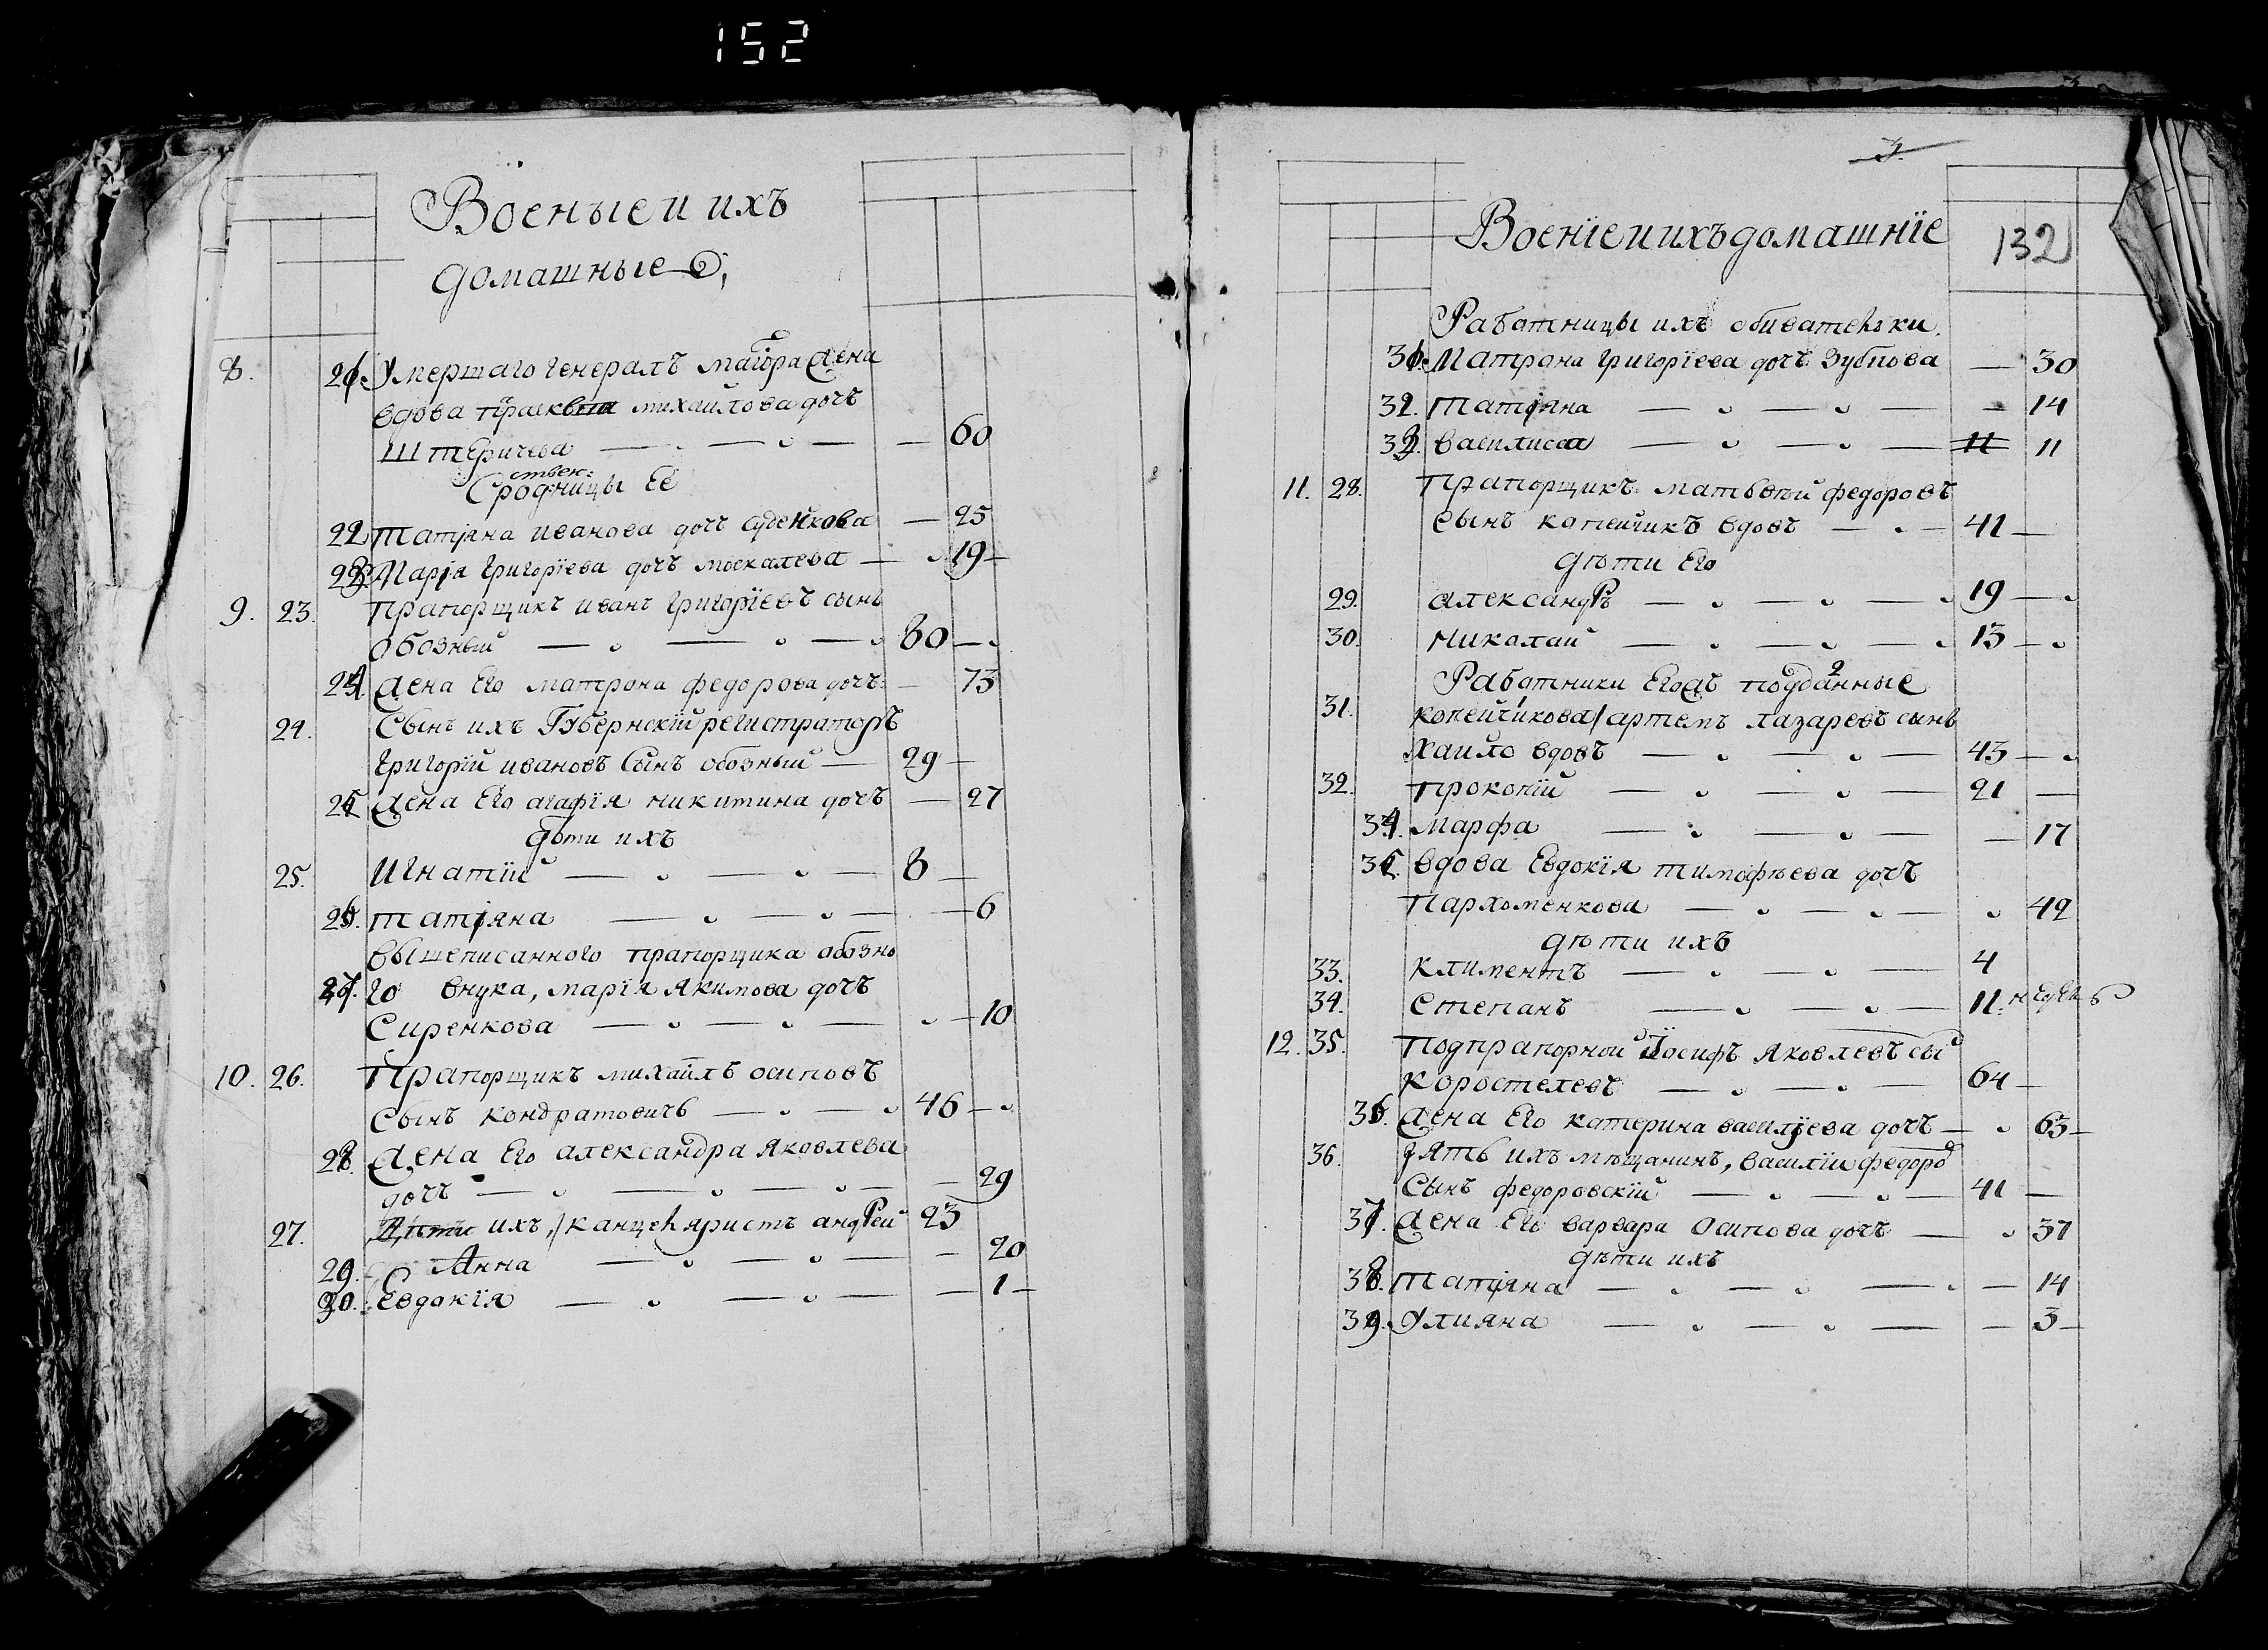 152
Военыеи ихъ
домашные
8. 21. Умершаго генералъ маіора жена
вдова михаилова дочь
Штеричева — 60
Сродственницы Ее
22 татіяна иванова дочь — 25
23 Марія григоріева дочъ москалева — 19
9. 23. Прапорщикъ иванъ григоріевъ сынъ
обозный — 80 —
24 жена Его матрона федорова дочъ — 73
24. Сынъ ихъ Губернскій регистраторъ
григорій ивановъ Сынъ обозный — 29 —
25 жена Его агафія никитина дочъ — 27
дѣти ихъ
25. Игнатій — 8 —
26. татіяна — 6
вышеписанного прапорщика обозно
27. го внука, марія Якимова дочъ
Сиренкова — 10
10. 26. Прапорщикъ михаилъ осиповъ
Сынъ кондратовичь — 46 —
28. жена Его александра Яковлева
дочъ — 29
27. Дѣти ихъ, канцеляристъ андрей 23
29. Анна — 20
30. Евдокія — 1 —
3.
Военіеиихъдомашніе
132
Работницы ихъ обивателки
31. Матрона григоріева дочъ Зубкова — 30
32. татіяна — 14
33. василиса — 11 11
11. 28. Прапорщикъ матьвѣй федоровъ
сынъ копейчикъ вдовъ — 41 —
дѣти Его
29. александръ — 19 —
30. николай — 13 —
Работники Егожъ подданные
31. копейчикова/ артемъ лазаревъ сынъ
хаило вдовъ — 43 —
32. прокопій — 21 —
34. марфа — 17
35. вдова Евдокія тимофѣева дочъ
Пархоменкова — 42
дѣти ихъ
33. климентъ — 4
34. Степанъ — 11. недель
12. 35. Подпрапорной Іосифъ Яковлевъ сы
коростелевъ — 64 —
36. жена Его катерина василіева дочъ — 63 —
36. зять ихъ мѣщанинъ, василій федоро
Сынъ федоровскій — 41 —
37. жена Его варвара Осипова дочъ — 37
дѣти ихъ
38. татіяна — 14
39. Улияна — 3 —